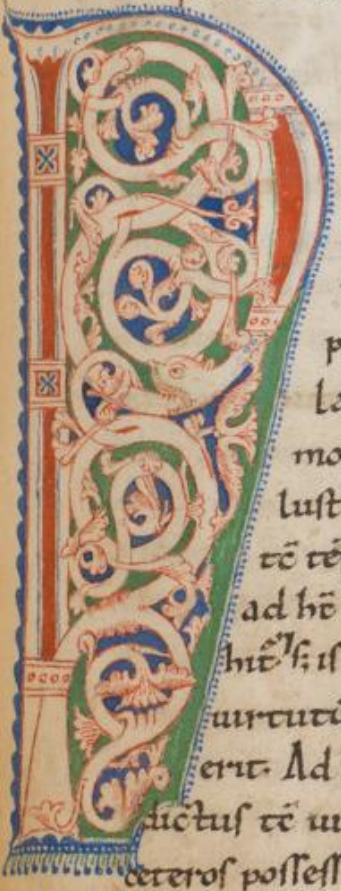 P
p
la
mo
lust
tē tē
ad hē
uirtutē
erit. Ad
dictus tē ui
ceteros possess